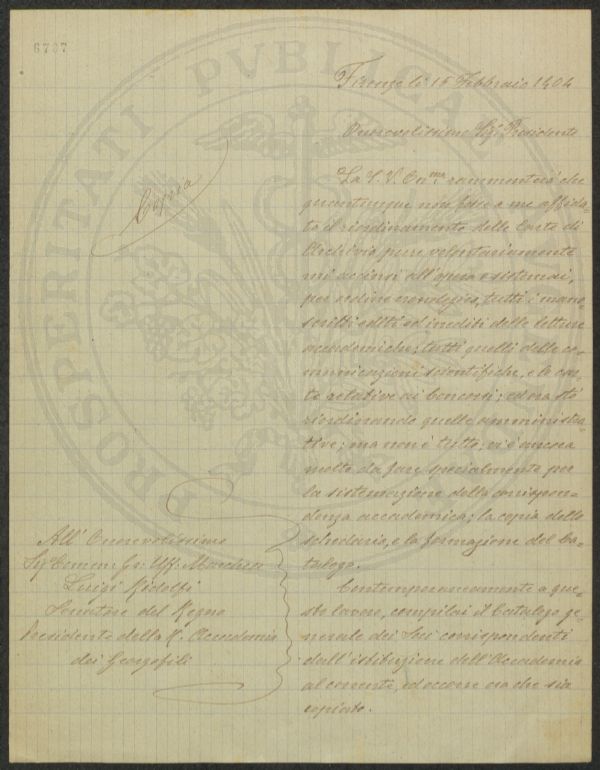 6707
Firenze li 15 Febbraio 1904
Onorevolissimo Sig. Presidente
Copia
La S. V. On.ma rammenterà che
quantunque non fosse a me affida-
to il riordinamento delle Carte di
Archivio pure volontariamente
mi accinsi all'opera e sistemai,
per ordine cronologico, tutti i mano-
scritti editi ed inediti delle letture
accademiche; tutti quelli delle co-
municazioni scientifiche, e le car-
te relative ai Concorsi; ed ora sto
riordinando quelle amministra-
tive; ma non è tutto, vi è ancora
molto da fare specialmente per
la sistemazione della corrispon-
denza accademica; la copia dello
schedario, e la formazione del Ca-
talogo.
Contemporaneamente a que-
sto lavoro, compilai il Catalogo ge-
nerale dei Soci corrispondenti
dall'istituzione dell'Accademia
al corrente, ed occorre ora che sia
copiato.
All' Onorevolissimo
Sig. Comm. Gr. Uff. Marchese
Luigi Ridolfi
Senatore del Regno
Presidente della R. Accademia
dei Georgofili
PROSPERITATI PVBLICAE